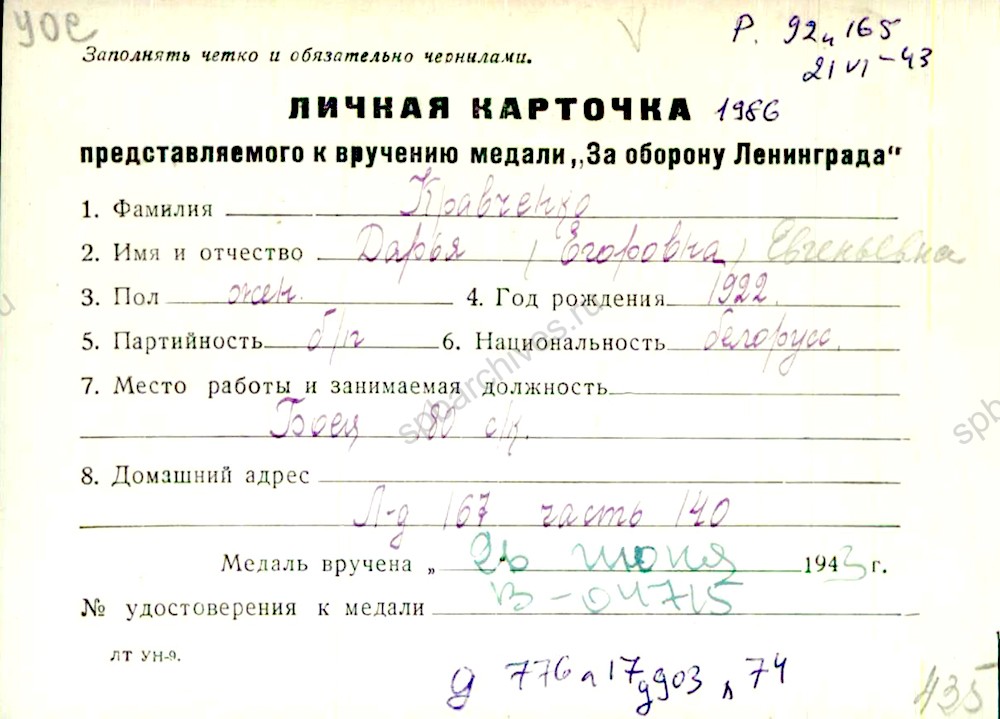 уое
Р. 92 л 165
21 VI-43
Заполнять четко и обязательно чернилами.
ЛИЧНАЯ КАРТОЧКА 1986
представляемого к вручению медали „За оборону Ленинграда"
1. Фамилия Кравченко
2. Имя и отчество Дарья (Егоровна) Евгеньевна
3. Пол жен. 4. Год рождения 1922.
5. Партийность б/п 6. Национальность белорусс.
7. Место работы и занимаемая должность
Боец 80 с/к.
8. Домашний адрес
Л-д 167 часть 140
Медаль вручена „ 26 июня 1943 г.
№ удостоверения к медали В-04715
ЛТ УН-9.
д 776 л 17 д 903 л 74
435
spbarchives.ru